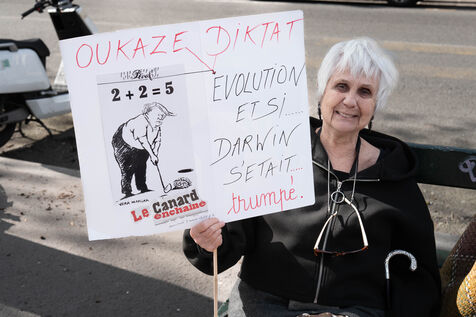 OUKAZE DIKTAT
2 + 2 = 5
Le Canard
enchaîné
EVOLUTION
ET SI....
DARWIN
S'ETAIT.....
trumpé.